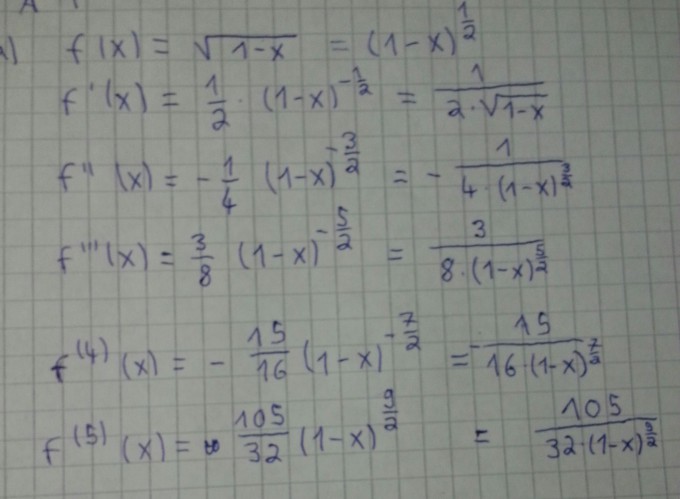 a) f(x) = √(1-x) = (1-x)^(1/2)
f'(x) = 1/2 · (1-x)^(-1/2) = 1/(2·√(1-x))
f''(x) = - 1/4 (1-x)^(-3/2) = - 1/(4·(1-x)^(3/2))
f'''(x) = 3/8 (1-x)^(-5/2) = 3/(8·(1-x)^(5/2))
f^(4)(x) = - 15/16 (1-x)^(-7/2) = - 15/(16·(1-x)^(7/2))
f^(5)(x) = 105/32 (1-x)^(9/2) = 105/(32·(1-x)^(9/2))